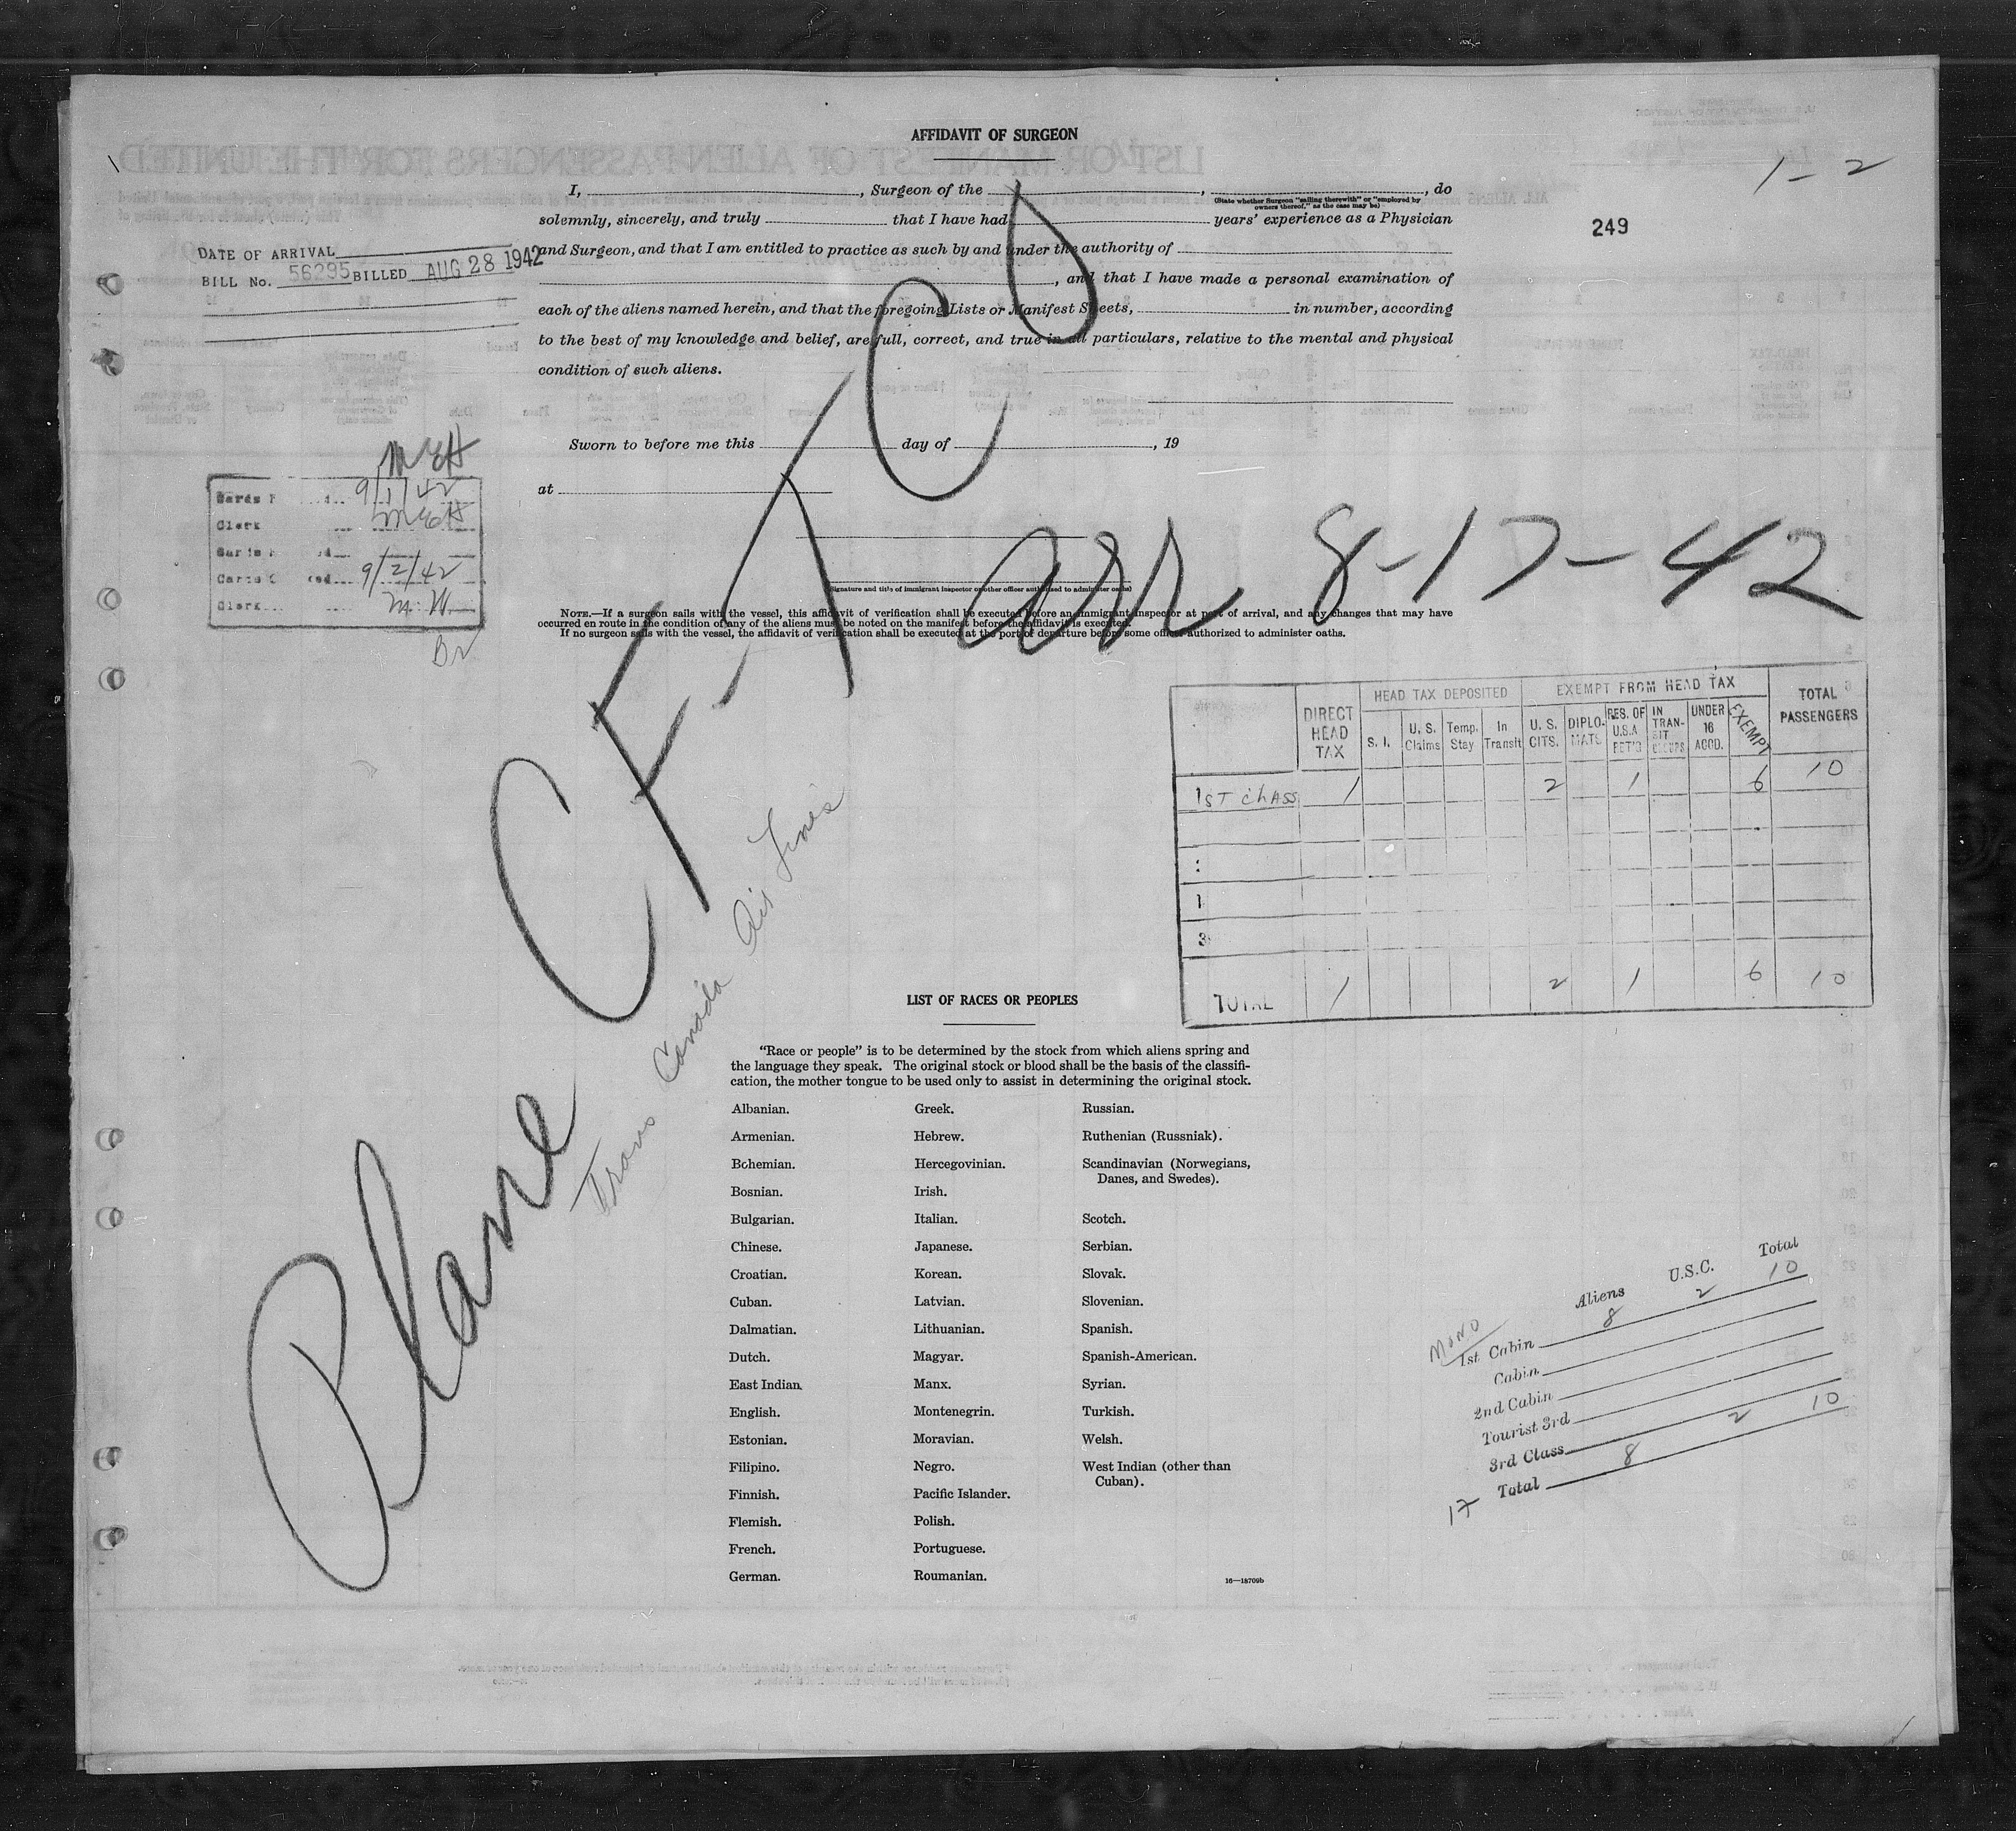 AFFIDAVIT OF SURGEON
1-2
249
I, , Surgeon of the , , do
(State whether Surgeon "sailing therewith" or "employed by
owners thereof," as the case may be)
solemnly, sincerely, and truly that I have had years' experience as a Physician
and Surgeon, and that I am entitled to practice as such by and under the authority of
, and that I have made a personal examination of
each of the aliens named herein, and that the foregoing Lists or Manifest Sheets, in number, according
to the best of my knowledge and belief, are full, correct, and true in all particulars, relative to the mental and physical
condition of such aliens.
Sworn to before me this day of , 19
at
(Signature and title of immigrant inspector or other officer authorized to administer oaths)
NOTE.—If a surgeon sails with the vessel, this affidavit of verification shall be executed before an immigrant inspector at port of arrival, and any changes that may have
occurred en route in the condition of any of the aliens must be noted on the manifest before the affidavit is executed.
If no surgeon sails with the vessel, the affidavit of verification shall be executed at the port of departure before some officer authorized to administer oaths.
DATE OF ARRIVAL
BILL No. 56295 BILLED AUG 28 1942
MEH
9/1/42
Clerk MEH
9/2/42
Clerk M.W.
Plane CF-TCD
arr 8-17-42
Trans Canada Air Lines
DIRECT HEAD TAX
HEAD TAX DEPOSITED
S. I.
U. S. Claims
Temp. Stay
In Transit
EXEMPT FROM HEAD TAX
U. S. CITS.
DIPLOMATS
RES. OF U.S.A RET'G
IN TRANSIT
UNDER 16 ACCD.
EXEMPT
TOTAL PASSENGERS
1ST CLASS 1 2 1 6 10
TOTAL 1 2 1 6 10
LIST OF RACES OR PEOPLES
"Race or people" is to be determined by the stock from which aliens spring and
the language they speak. The original stock or blood shall be the basis of the classifi-
cation, the mother tongue to be used only to assist in determining the original stock.
Albanian.
Armenian.
Bohemian.
Bosnian.
Bulgarian.
Chinese.
Croatian.
Cuban.
Dalmatian.
Dutch.
East Indian.
English.
Estonian.
Filipino.
Finnish.
Flemish.
French.
German.
Greek.
Hebrew.
Hercegovinian.
Irish.
Italian.
Japanese.
Korean.
Latvian.
Lithuanian.
Magyar.
Manx.
Montenegrin.
Moravian.
Negro.
Pacific Islander.
Polish.
Portuguese.
Roumanian.
Russian.
Ruthenian (Russniak).
Scandinavian (Norwegians,
Danes, and Swedes).
Scotch.
Serbian.
Slovak.
Slovenian.
Spanish.
Spanish-American.
Syrian.
Turkish.
Welsh.
West Indian (other than
Cuban).
16—18709b
Aliens U.S.C. Total
MONO
1st Cabin 8 2 10
Cabin
2nd Cabin
Tourist 3rd
3rd Class
Total 8 2 10
17